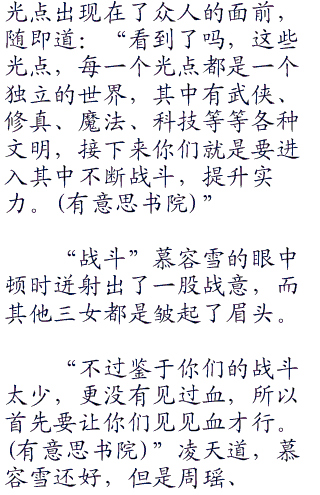 光点出现在了众人的面前，
随即道：“看到了吗，这些
光点，每一个光点都是一个
独立的世界，其中有武侠、
修真、魔法、科技等等各种
文明，接下来你们就是要进
入其中不断战斗，提升实
力。(有意思书院)”
“战斗”慕容雪的眼中
顿时迸射出了一股战意，而
其他三女都是皱起了眉头。
“不过鉴于你们的战斗
太少，更没有见过血，所以
首先要让你们见见血才行。
(有意思书院)”凌天道，慕
容雪还好，但是周瑶、